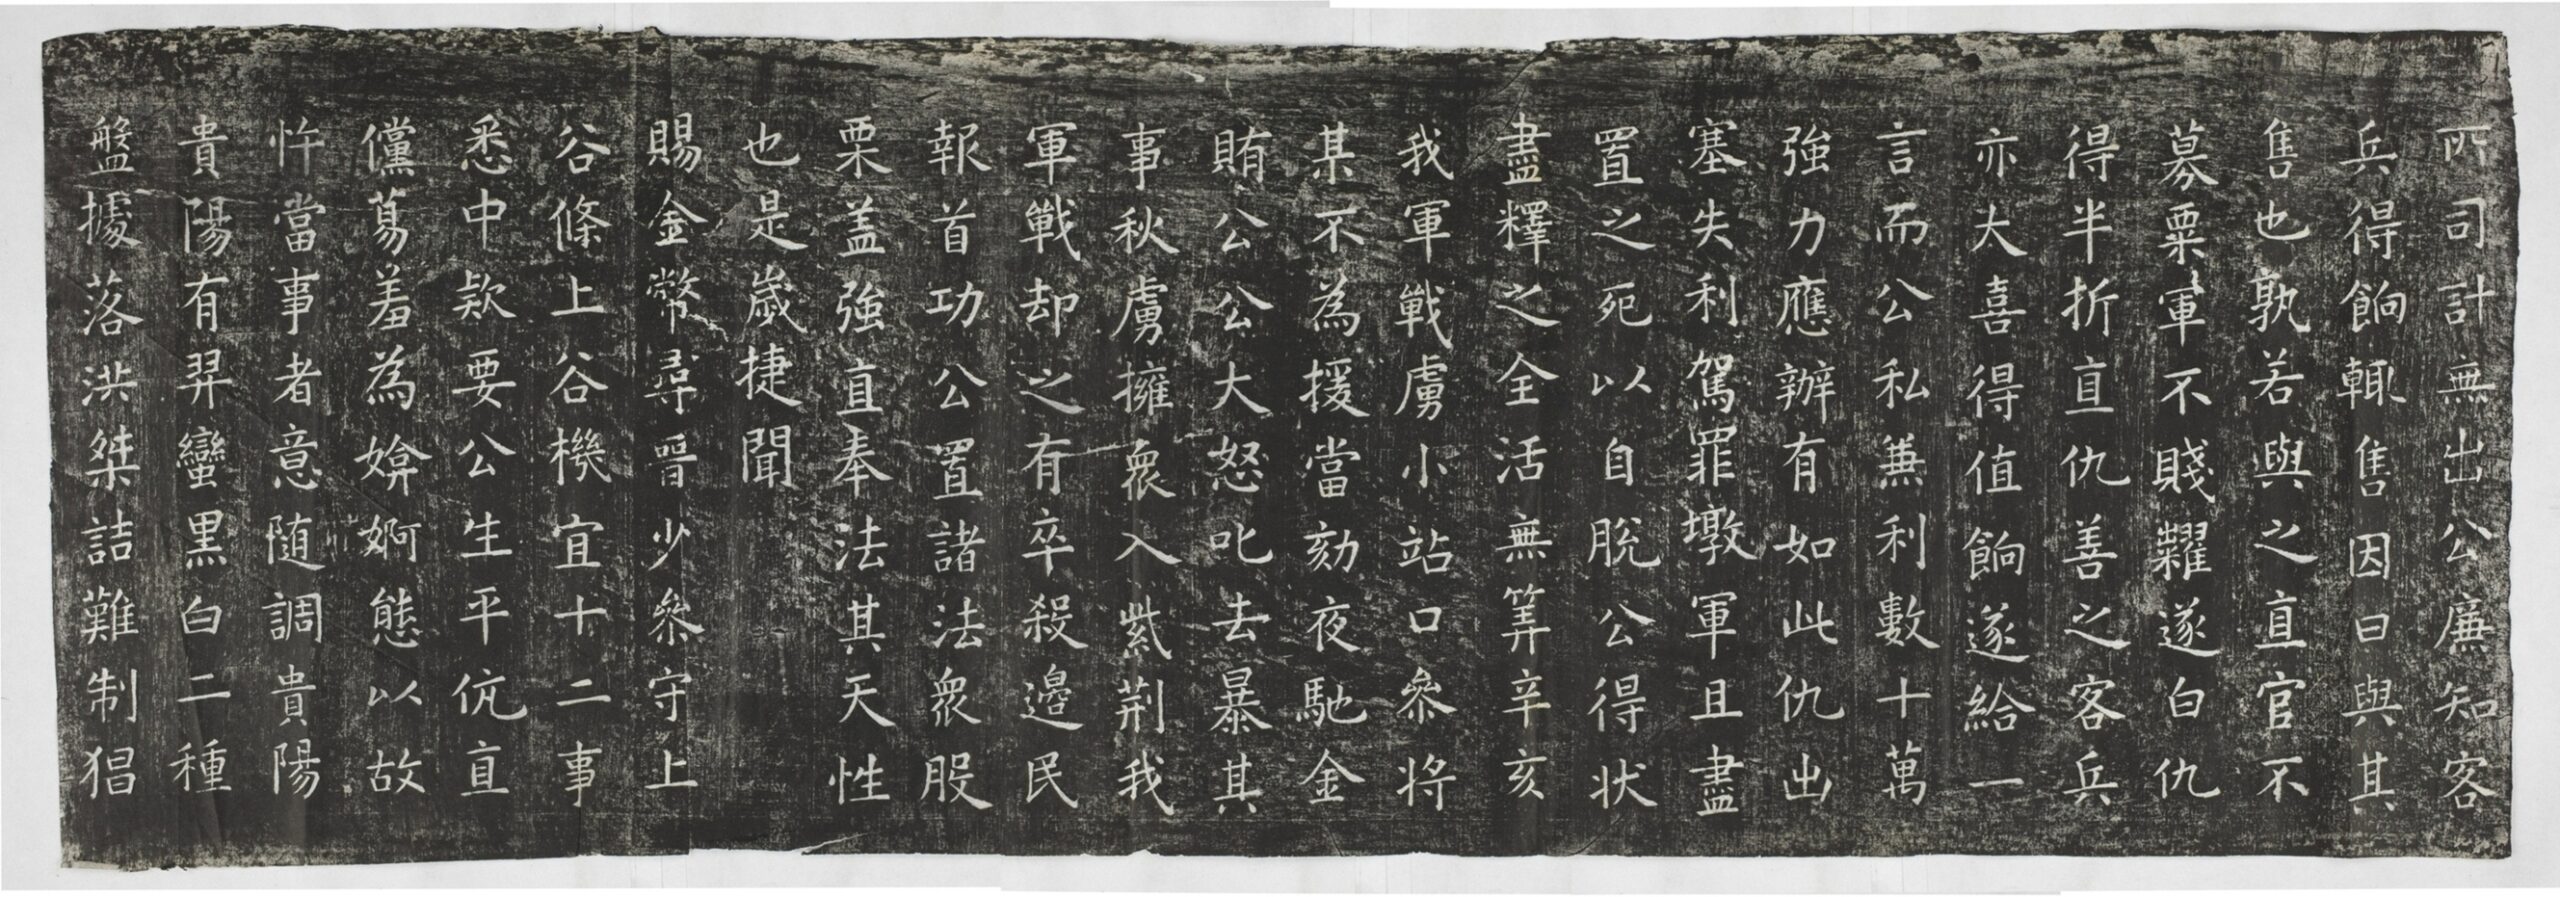 所司計無出公廉知客
兵得餉輒售因曰與其
售也孰若與之直官不
募粟軍不賤糶遂白仇
得半折直仇善之客兵
亦大喜得值餉遂給一
言而公私兼利數十萬
強力應辦有如此仇出
塞失利駕罪墩軍且盡
置之死以自脫公得狀
盡釋之全活無筭辛亥
我軍戰虜小站口參將
某不為援當劾夜馳金
賄公公大怒叱去暴其
事秋虜擁眾入紫荊我
軍戰却之有卒殺邊民
報首功公置諸法眾股
栗盖強直奉法其天性
也是歲捷聞
賜金幣尋晉少參守上
谷條上谷機宜十二事
悉中欵要公生平伉直
儻蕩羞為媕婀態以故
忤當事者意随調貴陽
貴陽有羿蠻黑白二種
盤據落洪桀詰難制猖